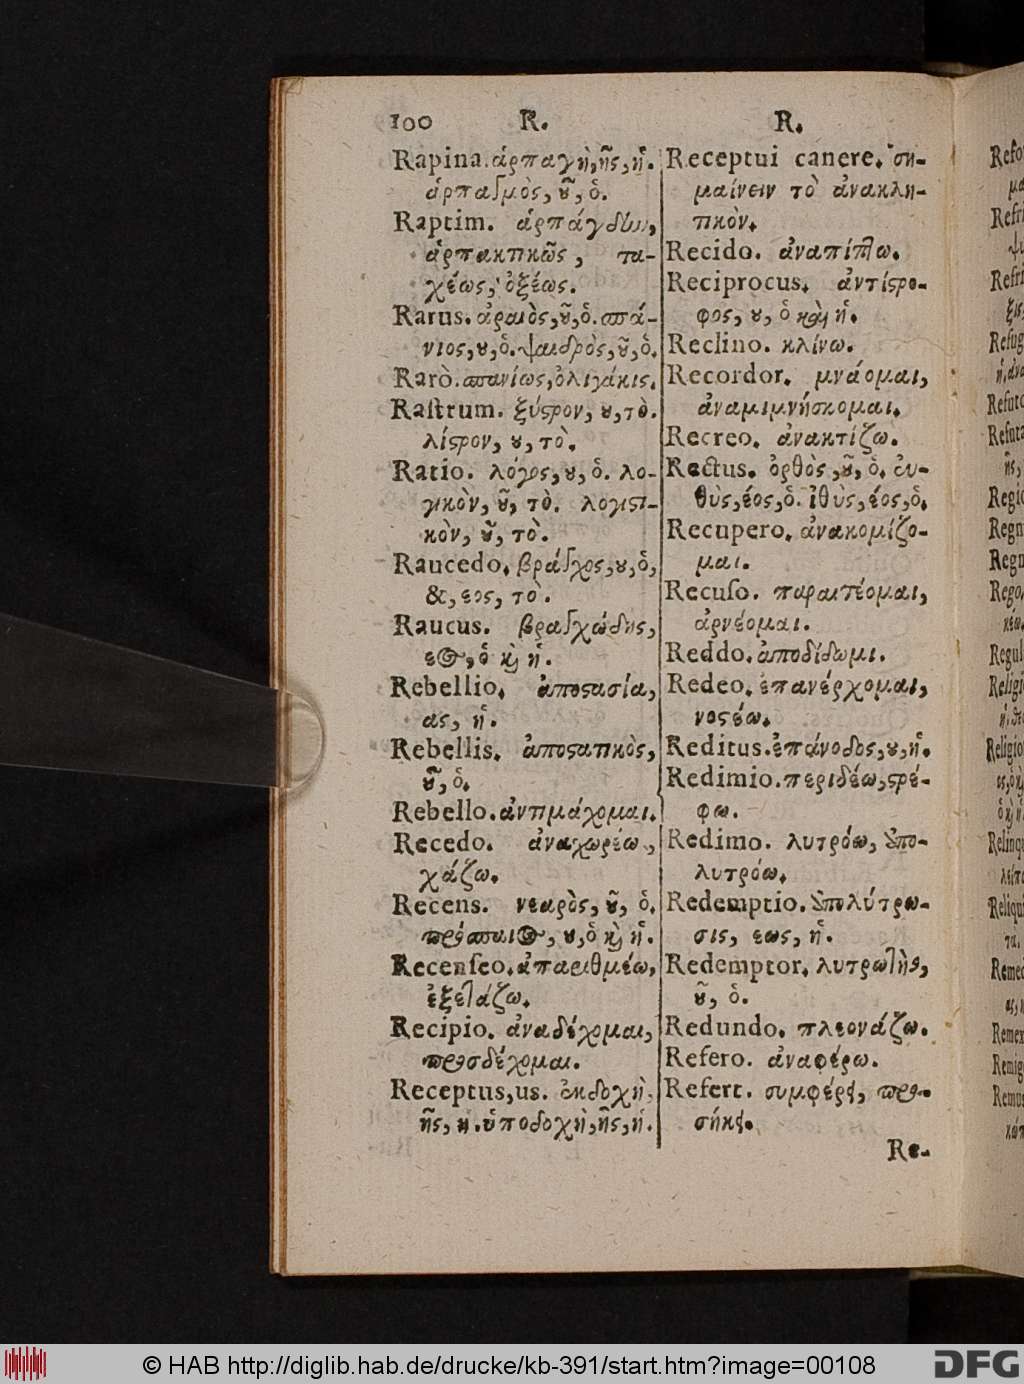 100 R. R.
Rapina. ἁρπαγὴ, ῆς, ἡ.
ἁρπαγμὸς, οῦ, ὁ.
Raptim. ἁρπάγδην,
ἁρπακτικῶς, τα-
χέως, ὀξέως.
Rarus. ἀραιὸς, οῦ, ὁ. σπά-
νιος, ου, ὁ. ψαιδρὸς, οῦ, ὁ.
Rarò. σπανίως, ὀλιγάκις.
Raſtrum. ξύϛρον, ου, τὸ.
λίϛρον, ου, τὸ.
Ratio. λόγος, ου, ὁ. λο-
γικὸν, οῦ, τὸ. λογιϛι-
κὸν, οῦ, τὸ.
Raucedo. βράγχος, ου, ὁ,
&, εος, τὸ.
Raucus. βραγχώδης,
εος, ὁ κὶ ἡ.
Rebellio. ἀποϛασία,
ας, ἡ.
Rebellis. ἀποϛατικὸς,
οῦ, ὁ.
Rebello. ἀντιμάχομαι.
Recedo. ἀναχωρέω,
χάζω.
Recens. νεαρὸς, οῦ, ὁ.
πρόσπαιος, ου, ὁ κὶ ἡ.
Recenſeo. ἀπαριθμέω,
ἐξετάζω.
Recipio. ἀναδέχομαι,
προσδέχομαι.
Receptus, us. ἐκδοχὴ,
ῆς, ἡ. ὑποδοχὴ, ῆς, ἡ.
Receptui canere. ση-
μαίνειν τὸ ἀνακλη-
τικὸν.
Recido. ἀναπίπτω.
Reciprocus. ἀντίϛρο-
φος, ου, ὁ καὶ ἡ.
Reclino. κλίνω.
Recordor. μνάομαι,
ἀναμιμνήσκομαι.
Recreo. ἀνακτίζω.
Rectus. ὀρθὸς, οῦ, ὁ. εὐ-
θὺς, έος, ὁ. ἰθὺς, έος, ὁ.
Recupero. ἀνακομίζο-
μαι.
Recuſo. παραιτέομαι,
ἀρνέομαι.
Reddo. ἀποδίδωμι.
Redeo. ἐπανέρχομαι,
νοϛέω.
Reditus. ἐπάνοδος, ου, ἡ.
Redimio. περιδέω, ϛρέ-
φω.
Redimo. λυτρόω, ἀπο-
λυτρόω.
Redemptio. ἀπολύτρω-
σις, εως, ἡ.
Redemptor. λυτρωτὴς,
οῦ, ὁ.
Redundo. πλεονάζω.
Refero. ἀναφέρω.
Refert. συμφέρει, προ-
σήκει.
Re-
© HAB http://diglib.hab.de/drucke/kb-391/start.htm?image=00108
DFG